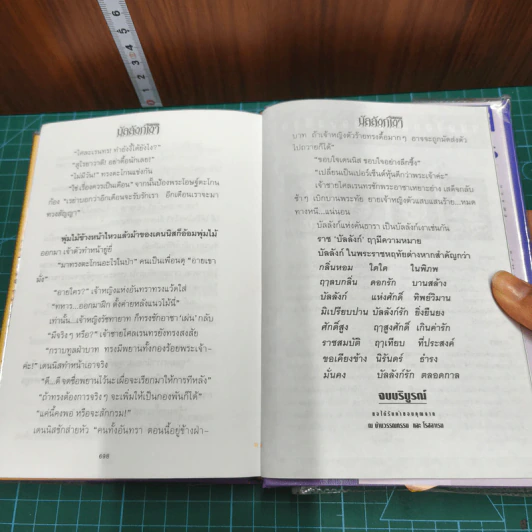 บัลลังก์ไอวี่
"โคลเรนทร! ทำยังงี้ได้ยังไง?"
"ดูใจยาวาซี! อย่าดื้อนักเลย!"
"ไม่มีวัน!" ทรงตะโกนแข่งกัน
ก้อง "เวลาบอกว่าอีกเดือนจะรับรักเรา อีกเดือนเราจะมา
ทรงสัญญา"
พุ่มไม้ข้างหน้าไหวแล้วม้าของเดนนิสก็อ้อมพุ่มไม้
ออกมา เจ้าตัวทำหน้ายู่ยี่
"มาทรงตะโกนอะไรในป่า" คนเป็นเพื่อนดุ "อายเขา
"อายใคร?" เจ้าหญิงแห่งอันทราทรงแว้ดใส่
"ทหาร...ออกมาฝึก ตั้งค่ายหลังเนินไม้นี่"
"มีจริงๆ หรือ?" เจ้าชายโคลเรนทรยังทรงสงสัย
"กราบทูลฝ่าบาท ทรงมีพยานทั้งกองร้อยพระเจ้า-
ค่ะ!" เดนนิสทำหน้าเอาจริง
"ดี...ดี จดชื่อพยานไว้นะ เผื่อจะเรียกมาให้การทีหลัง"
"ถ้าทรงต้องการจริงๆ จะเพิ่มให้เป็นกองพันก็ได้"
"แค่นี้คงพอ หรือจะสักกรม!"
เดนนิสชักส่ายหัว "คนทั้งอันทรา ตอนนี้อยู่ข้างฝ่า-
บัลลังก์ไอวี่
บาท ถ้าเจ้าหญิงตัวร้ายทรงดื้อมากๆ อาจจะถูกมัดส่งตัว
ไปถวายก็ได้"
"ขอบใจเดนนิส ขอบใจอย่างลึกซึ้ง"
"เปลี่ยนเป็นเปอร์เซ็นต์หุ้นดีกว่าพระเจ้าค่ะ"
เจ้าชายโคลเรนทรชักพระอาชาเหยาะย่าง เสด็จกลับ
ช้าๆ เบิกบานพระทัย ยายเจ้าหญิงตัวแสบแสนร้าย...หมด
ทางหนี...แน่นอน
บัลลังก์แห่งคันธารา เป็นบัลลังก์เราเช่นกัน
ราช 'บัลลังก์' ฤๅมีความหมาย
บัลลังก์ ในพระราชหฤทัยต่างหากสำคัญกว่า
กลิ่นหอม ใดใด ในพิภพ
ฤๅลบกลิ่น ดอกรัก บานสล้าง
บัลลังก์ แห่งศักดิ์ ทิพย์วิมาน
มิเปรียบปาน บัลลังก์รัก ยิ่งยืนยง
ศักดิ์สูง ฤๅสูงศักดิ์ เกินค่ารัก
ราชสมบัติ ฤๅเทียบ ที่ประสงค์
ขอเคียงข้าง นิรันดร์ ธำรง
มั่นคง บัลลังก์รัก ตลอดกาล
จบบริบูรณ์